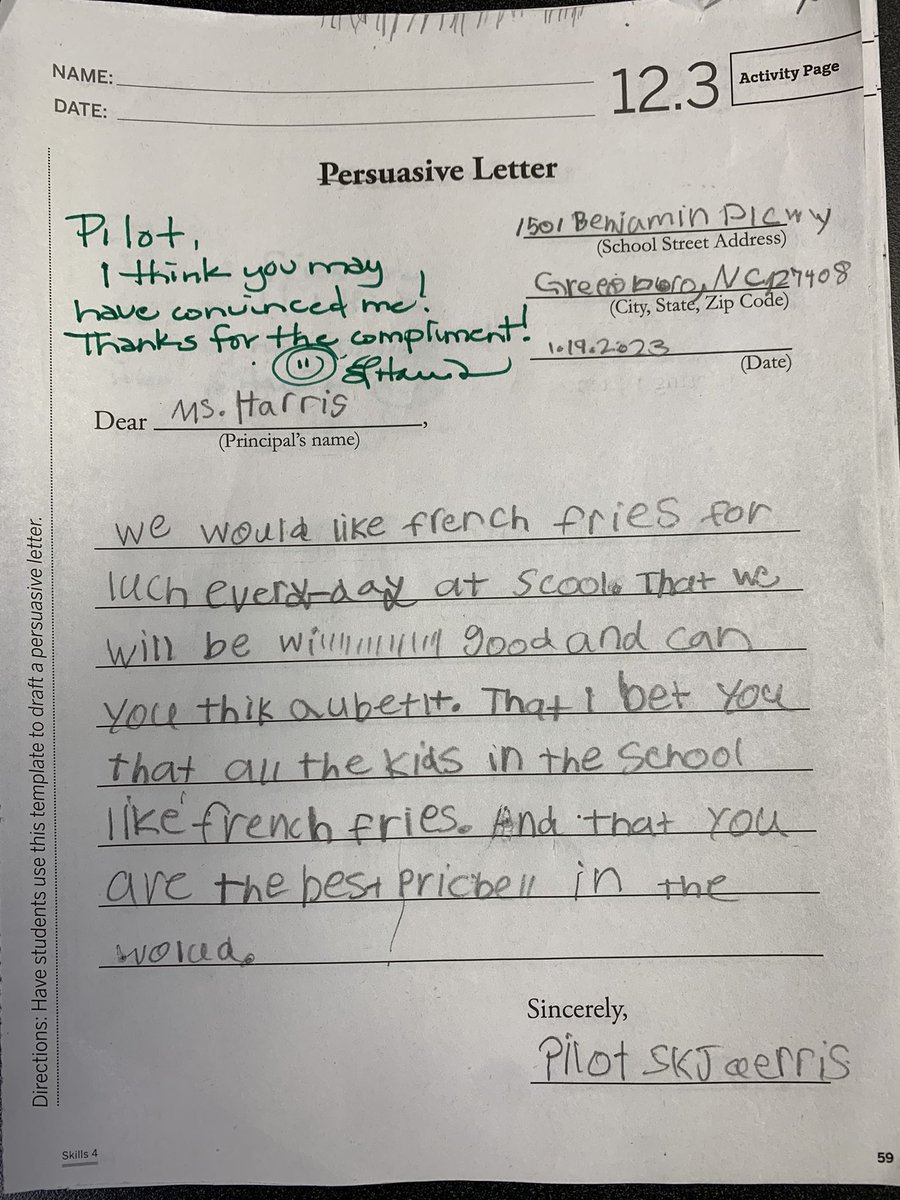 NAME:
DATE:
12.3
Activity Page
Persuasive Letter
Pilot,
I think you may
have convinced me!
Thanks for the compliment!
1501 Benjamin Plcwy
(School Street Address)
Greensboro, NC 27408
(City, State, Zip Code)
1.19.2023
(Date)
Dear Ms. Harris,
(Principal's name)
we would like french fries for
luch every-day at scool. That we
will be willlllllllllll good and can
you thik aubetit. That I bet you
that all the kids in the school
like french fries. And that you
are the best pricbell in the
wolud.
Sincerely,
Pilot SKJaerris
Directions: Have students use this template to draft a persuasive letter.
Skills 4
59